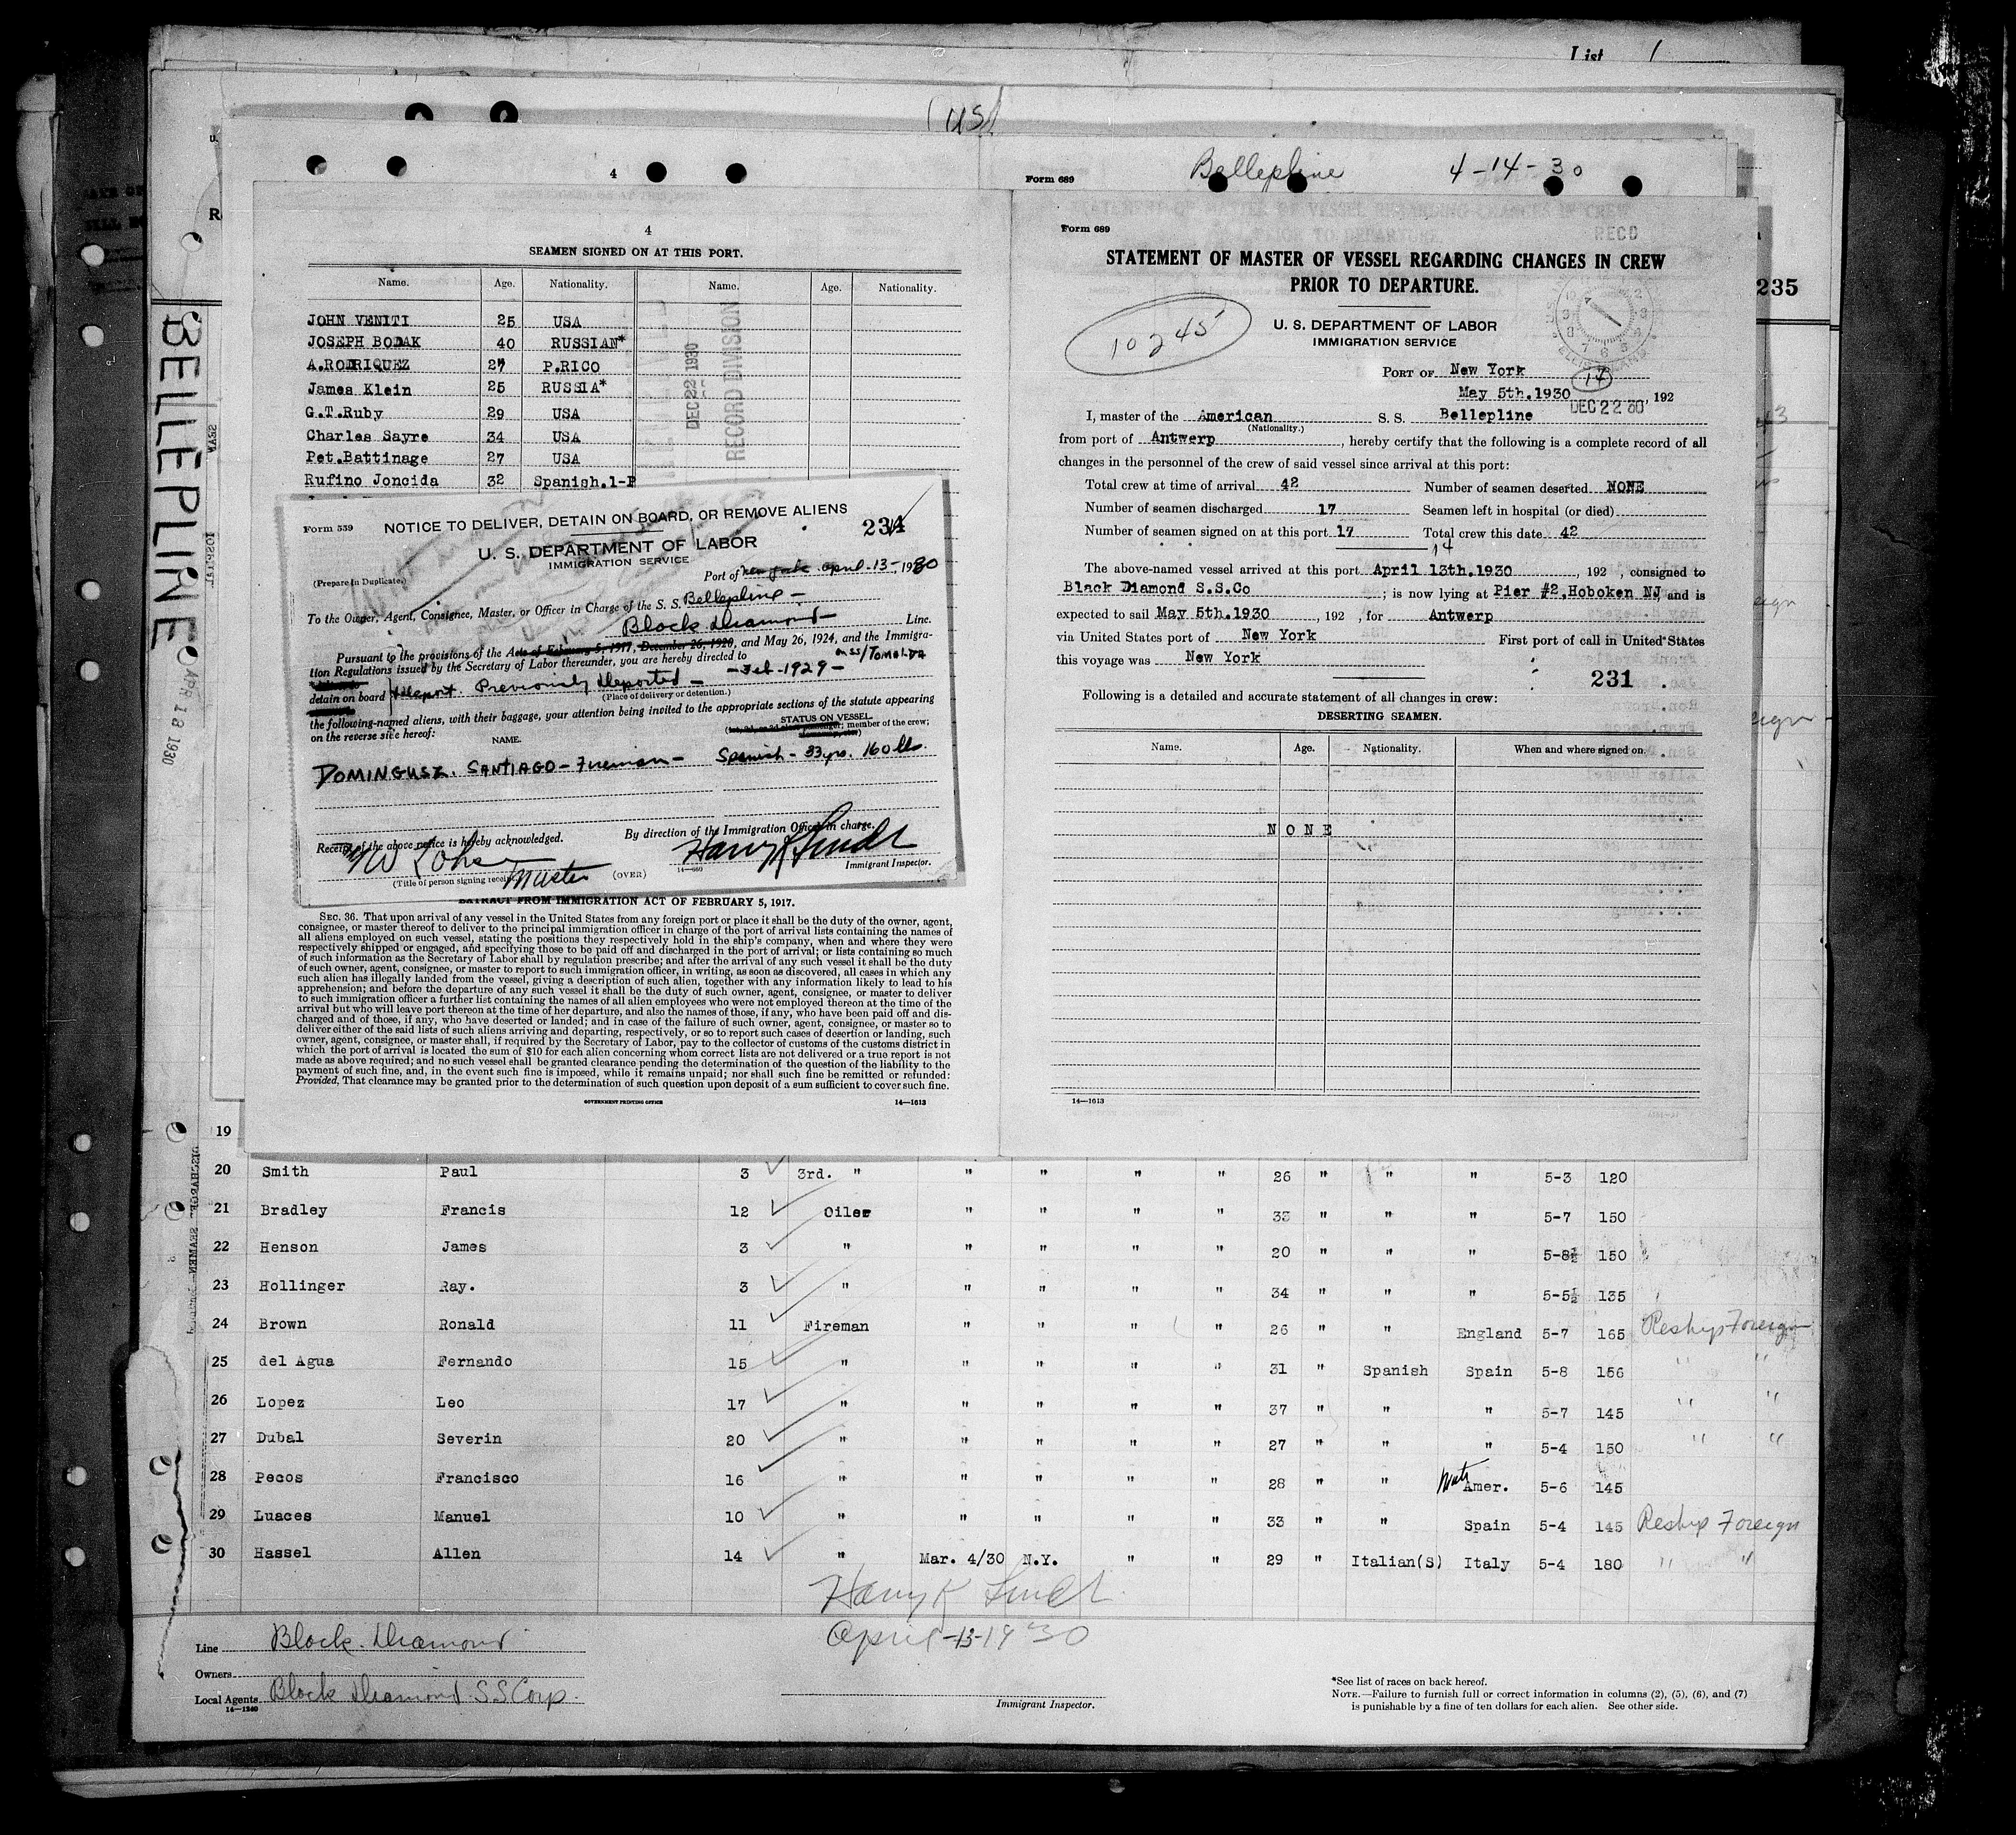 List 1
US
4
Form 689
Bellepline 4-14-30
BELLEPLINE
APR 13 1930
4
SEAMEN SIGNED ON AT THIS PORT.
Name. Age. Nationality. Name. Age. Nationality.
JOHN VENITI 25 USA
JOSEPH BODAK 40 RUSSIAN*
A.RODRIQUEZ 27 P.RICO
James Klein 25 RUSSIA*
G.T.Ruby 29 USA
Charles Sayre 34 USA
Pet.Battinage 27 USA
Rufino Joncida 32 Spanish.1-P
DEC 22 1930
RECORD DIVISION
Form 539
NOTICE TO DELIVER, DETAIN ON BOARD, OR REMOVE ALIENS
234
U. S. DEPARTMENT OF LABOR
IMMIGRATION SERVICE
(Prepare in Duplicate.)
Port of New York. April-13-, 1930
To the Owner, Agent, Consignee, Master, or Officer in Charge of the S. S. Bellepline-
Black Diamond- Line.
Pursuant to the provisions of the Acts of February 5, 1917, December 26, 1920, and May 26, 1924, and the Immigra-
tion Regulations issued by the Secretary of Labor thereunder, you are hereby directed to
detain on board Deport. Previously Deported- -Feb-1929-
(Place of delivery or detention.)
the following-named aliens, with their baggage, your attention being invited to the appropriate sections of the statute appearing
on the reverse side hereof:
NAME.
STATUS ON VESSEL.
member of the crew;
DOMINGUEZ. SANTIAGO-Fireman- Spanish-33yrs. 160 lbs.
Receipt of the above notice is hereby acknowledged.
By direction of the Immigration Officer in charge.
Harry K
Immigrant Inspector.
Master
(Title of person signing receipt.)
(OVER)
14—660
EXTRACT FROM IMMIGRATION ACT OF FEBRUARY 5, 1917.
SEC. 36. That upon arrival of any vessel in the United States from any foreign port or place it shall be the duty of the owner, agent,
consignee, or master thereof to deliver to the principal immigration officer in charge of the port of arrival lists containing the names of
all aliens employed on such vessel, stating the positions they respectively hold in the ship's company, when and where they were
respectively shipped or engaged, and specifying those to be paid off and discharged in the port of arrival; or lists containing so much
of such information as the Secretary of Labor shall by regulation prescribe; and after the arrival of any such vessel it shall be the duty
of such owner, agent, consignee, or master to report to such immigration officer, in writing, as soon as discovered, all cases in which any
such alien has illegally landed from the vessel, giving a description of such alien, together with any information likely to lead to his
apprehension; and before the departure of any such vessel it shall be the duty of such owner, agent, consignee, or master to deliver
to such immigration officer a further list containing the names of all alien employees who were not employed thereon at the time of the
arrival but who will leave port thereon at the time of her departure, and also the names of those, if any, who have been paid off and dis-
charged and of those, if any, who have deserted or landed; and in case of the failure of such owner, agent, consignee, or master so to
deliver either of the said lists of such aliens arriving and departing, respectively, or so to report such cases of desertion or landing, such
owner, agent, consignee, or master shall, if required by the Secretary of Labor, pay to the collector of customs of the customs district in
which the port of arrival is located the sum of $10 for each alien concerning whom correct lists are not delivered or a true report is not
made as above required; and no such vessel shall be granted clearance pending the determination of the question of the liability to the
payment of such fine, and, in the event such fine is imposed, while it remains unpaid; nor shall such fine be remitted or refunded:
Provided, That clearance may be granted prior to the determination of such question upon deposit of a sum sufficient to cover such fine.
GOVERNMENT PRINTING OFFICE 14—1613
Form 689
RECD
STATEMENT OF MASTER OF VESSEL REGARDING CHANGES IN CREW
PRIOR TO DEPARTURE.
235
10245
U. S. DEPARTMENT OF LABOR
IMMIGRATION SERVICE
PORT OF New York
14
May 5th.1930, 192
DEC 22 30
I, master of the American S. S. Bellepline
(Nationality.)
from port of Antwerp, hereby certify that the following is a complete record of all
changes in the personnel of the crew of said vessel since arrival at this port:
Total crew at time of arrival 42 Number of seamen deserted NONE
Number of seamen discharged 17 Seamen left in hospital (or died)
Number of seamen signed on at this port 17 Total crew this date 42
14
The above-named vessel arrived at this port April 13th.1930, 192 , consigned to
Black Diamond S.S.Co; is now lying at Pier #2,Hoboken NJ, and is
expected to sail May 5th.1930, 192 , for Antwerp
via United States port of New York First port of call in United States
this voyage was New York
231
Following is a detailed and accurate statement of all changes in crew:
DESERTING SEAMEN.
Name. Age. Nationality. When and where signed on.
NONE
14—1613
19
20 Smith Paul 3 3rd. " " " " " 26 " " " 5-3 120
21 Bradley Francis 12 Oiler " " " " 33 " " " 5-7 150
22 Henson James 3 " " " " " 20 " " " 5-8½ 150
23 Hollinger Ray. 3 " " " " " 34 " " " 5-5½ 135
24 Brown Ronald 11 Fireman " " " " 26 " " England 5-7 165 Reship Foreign
25 del Agua Fernando 15 " " " " " 31 " Spanish Spain 5-8 156 " "
26 Lopez Leo 17 " " " " " 37 " " " 5-7 145 " "
27 Dubal Severin 20 " " " " " 27 " " " 5-4 150 " "
28 Pecos Francisco 16 " " " " " 28 " " Amer. 5-6 145
29 Luaces Manuel 10 " " " " " 33 " " Spain 5-4 145 Reship Foreign
30 Hassel Allen 14 " Mar. 4/30 N.Y. " " 29 " Italian(S) Italy 5-4 180 " "
Harry K
April-13-1930
Line Black Diamond
Owners
Local Agents Black Diamond S.S.Corp.
14—1240
Immigrant Inspector.
*See list of races on back hereof.
NOTE.—Failure to furnish full or correct information in columns (2), (5), (6), and (7)
is punishable by a fine of ten dollars for each alien. See other side.